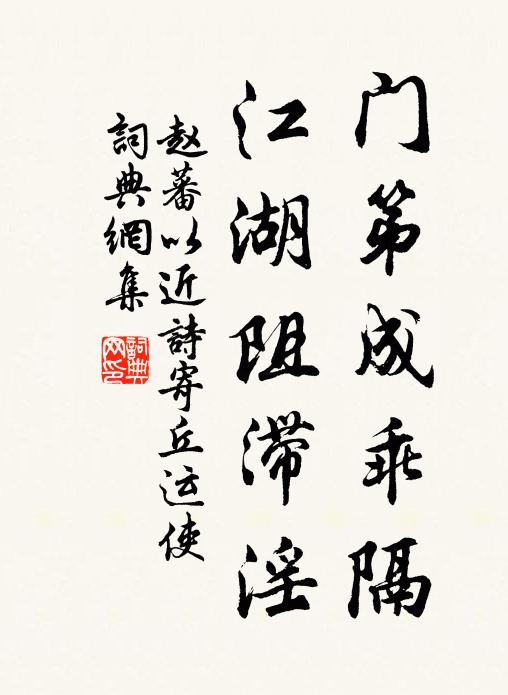 门第成乖隔
江湖阻滞淫
赵蕃以近詩寄丘运使
詞典網集
詞典
网印